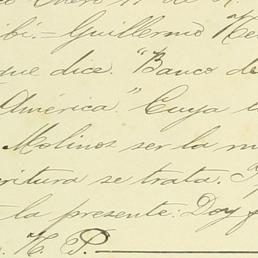 Enero 11 de
ibí.= Guillermo
que dice. "Banco de
América." Cuya
Molinos ser la m
critura se trata.
la presente: Doy f
H. P.